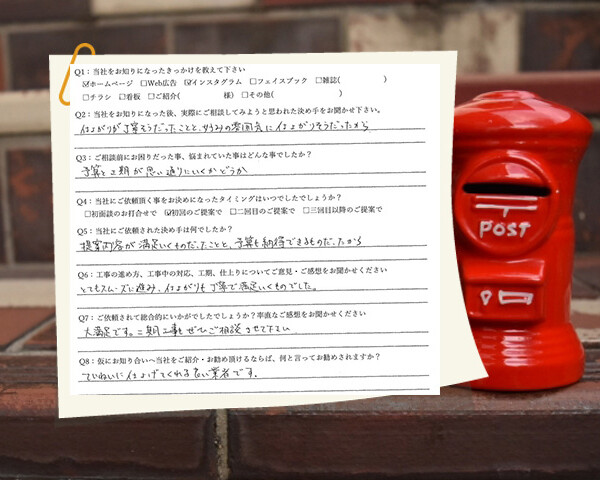 Q1：当社をお知りになったきっかけを教えて下さい
☑ホームページ □Web広告 ☑インスタグラム □フェイスブック □雑誌( )
□チラシ □看板 □ご紹介( 様) □その他( )
Q2：当社をお知りになった後、実際にご相談してみようと思われた決め手をお聞かせ下さい。
仕上がりが丁寧そうだったことと、好みの雰囲気に仕上がりそうだったから
Q3：ご相談前にお困りだった事、悩まれていた事はどんな事でしたか？
予算と工期が思い通りにいくかどうか
Q4：当社にご依頼頂く事をお決めになったタイミングはいつでしたでしょうか？
□初面談のお打合せで ☑初回のご提案で □二回目のご提案で □三回目以降のご提案で
Q5：当社にご依頼された決め手は何でしたか？
提案内容が満足いくものだったことと、予算も納得できるものだったから
Q6：工事の進め方、工事中の対応、工期、仕上りについてご意見・ご感想をお聞かせください
とてもスムーズに進み、仕上がりも丁寧で満足いくものでした。
Q7：ご依頼されて総合的にいかがでしたでしょうか？率直なご感想をお聞かせください
大満足です。二期工事もぜひご相談させて下さい
Q8：仮にお知り合いへ当社をご紹介・お勧め頂けるならば、何と言ってお勧めされますか？
ていねいに仕上げてくれる良い業者です。
POST